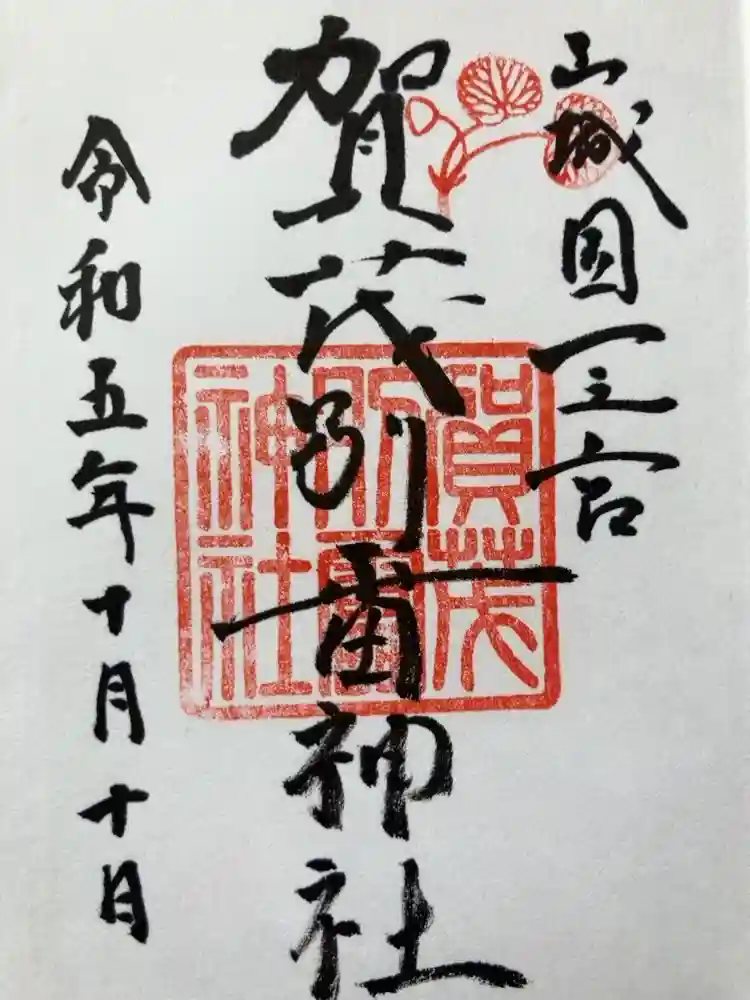 山城国一之宮
賀茂別雷神社
令和五年十月十日
賀茂
別雷
神社